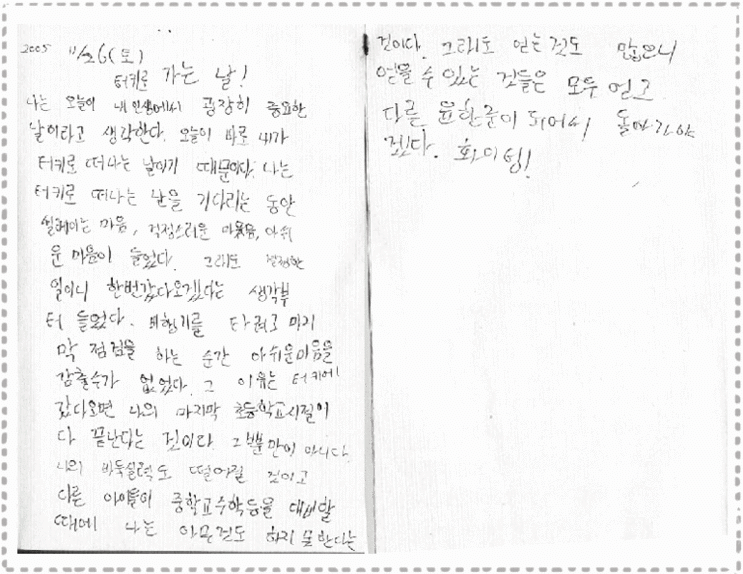 2005 11/26(토)
터키로 가는 날!
나는 오늘이 내 인생에서 굉장히 중요한
날이라고 생각한다. 오늘이 바로 내가
터키로 떠나는 날이기 때문이다. 나는
터키로 떠나는 날을 기다리는 동안
설레이는 마음, 걱정스러운 마음, 아쉬
운 마음이 들었다. 그래도 결정한
일이니 한번갔다오겠다는 생각부
터 들었다. 비행기를 타려고 마지
막 점검을 하는 순간 아쉬운마음을
감출수가 없었다. 그 이유는 터키에
갔다오면 나의 마지막 초등학교시절이
다 끝난다는 것이다. 그뿐만이 아니다.
나의 바둑실력도 떨어질 것이고
다른 아이들이 중학교수학등을 대비할
때에 나는 아무것도 하지 못한다는
것이다. 그래도 얻는것도 많으니
얻을 수 있는 것들은 모두 얻고
다른 윤한준이 되어서 돌아가야
겠다. 화이팅!